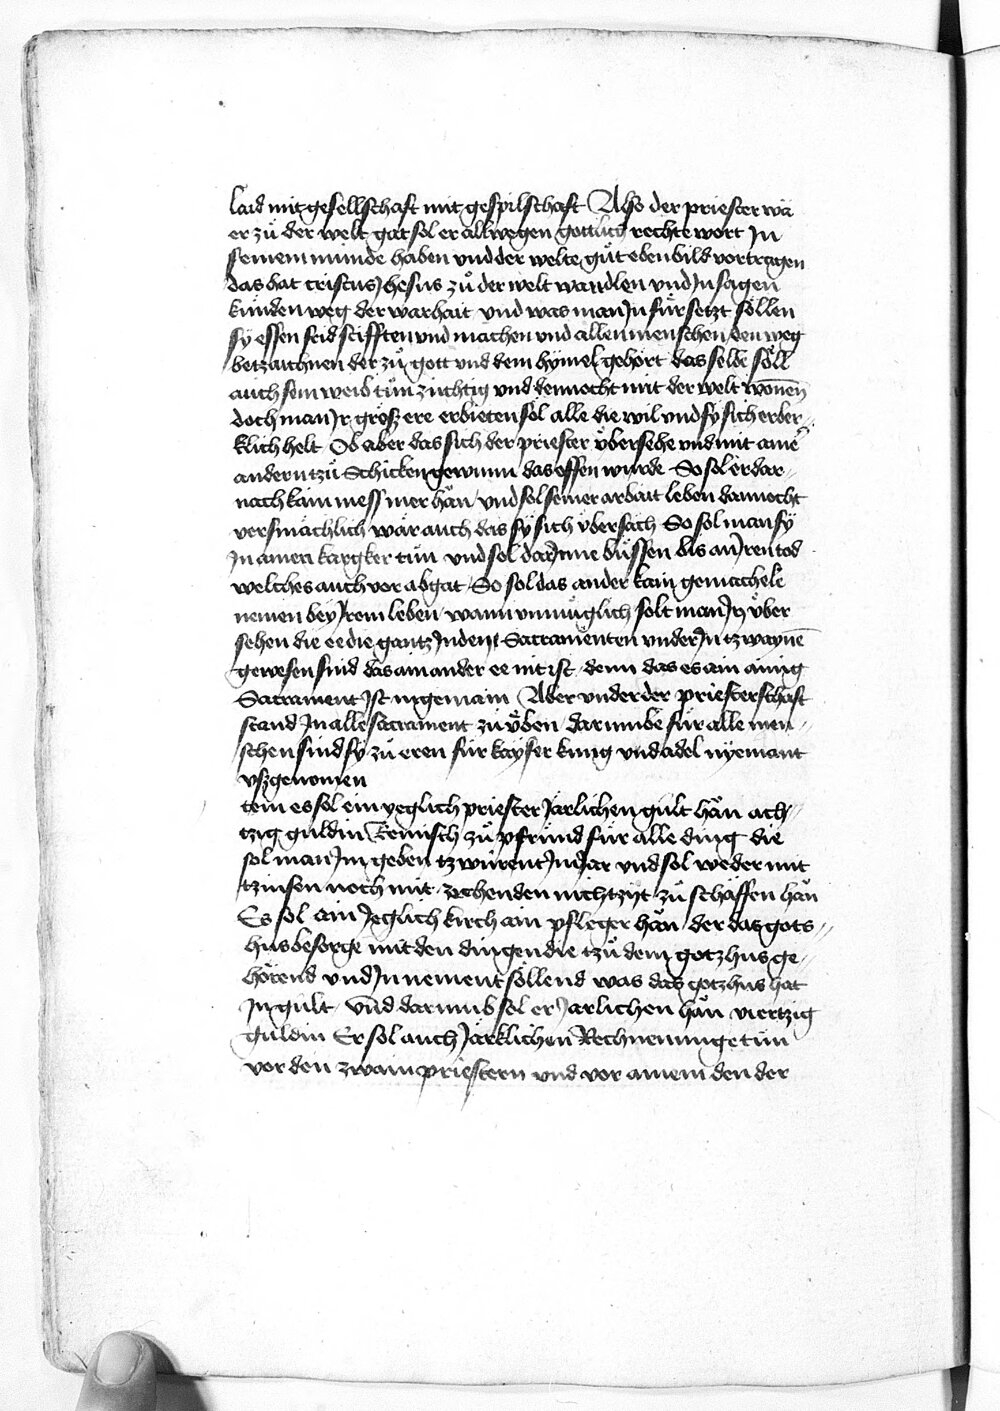 laid mit gesellschaft mit gespilschaft Also der priester wā
er zů der welt gat sol er allwegen gottlich rechte wort Jn
seinem munde haben vnd der welte gůt ebenbild vortragen
das hat cristus Jhesus zů der welt wandlen vnd Jn sagen
künden weg der warhait vnd was man Jn für setzt söllen
sy essen frid stifften vnd machen vnd allen menschen den weg
betzaichnen der zů gott vnd dem hymel gehört das selbe söll
auch sein weib tůn züchtig vnd dennocht mit der welt wonen
doch man Jr grosz ere erbieten sol alle die wil vnd sy sich erber
klich helt Ob aber das sich der priester übersehe vnd mit aině
andern tzů schicken gewunn das offen wurde So sol er dar
nach kain mess mer hän vnd sol seiner arbait leben dannocht
versmächlich wär auch das sy sich übersäch So sol man sy
Jn ainen kargker tůn vnd sol darJnne büssen bis an Jren tod
welches auch vor abgat So sol das ander kain gemachele
nemen bey Jrem leben wann vnmüglich solt man Jn über
sehen die ee die gantz Jn den Sacramenten vnder Jn tzwaynē
gewesen sind das ain ander ee nit ist denn das es ain ainig
Sacrament Jst ingemain Aber vnder der priesterschaft
stand Jn alle sacrament zů üben darumbe für alle men
schen sind sy zů eren für kayser kung vnd adel nyemant
vszgenomen
tem es sol ein yeglich priester Järlichen gült hän ach
tzig guldin Reinisch zů pfründ für alle ding die
sol man Jm geben tzwürent Jm Jar vnd sol weder mit
tzinsen noch mit zechenden nichtzyt zů schaffen hän
Es sol ain Jeglich kirch ain pfleger hän der das gots
hus besorge mit den dingen die tzů dem gotzhus ge
hörend vnd Jnnement söllend was das gotzhus hat
Jn gült vnd darumb sol er Jarlichen hän viertzig
guldin Er sol auch Järklichen Rechnennge tün
vor den zwain priestern vnd vor ainem den der